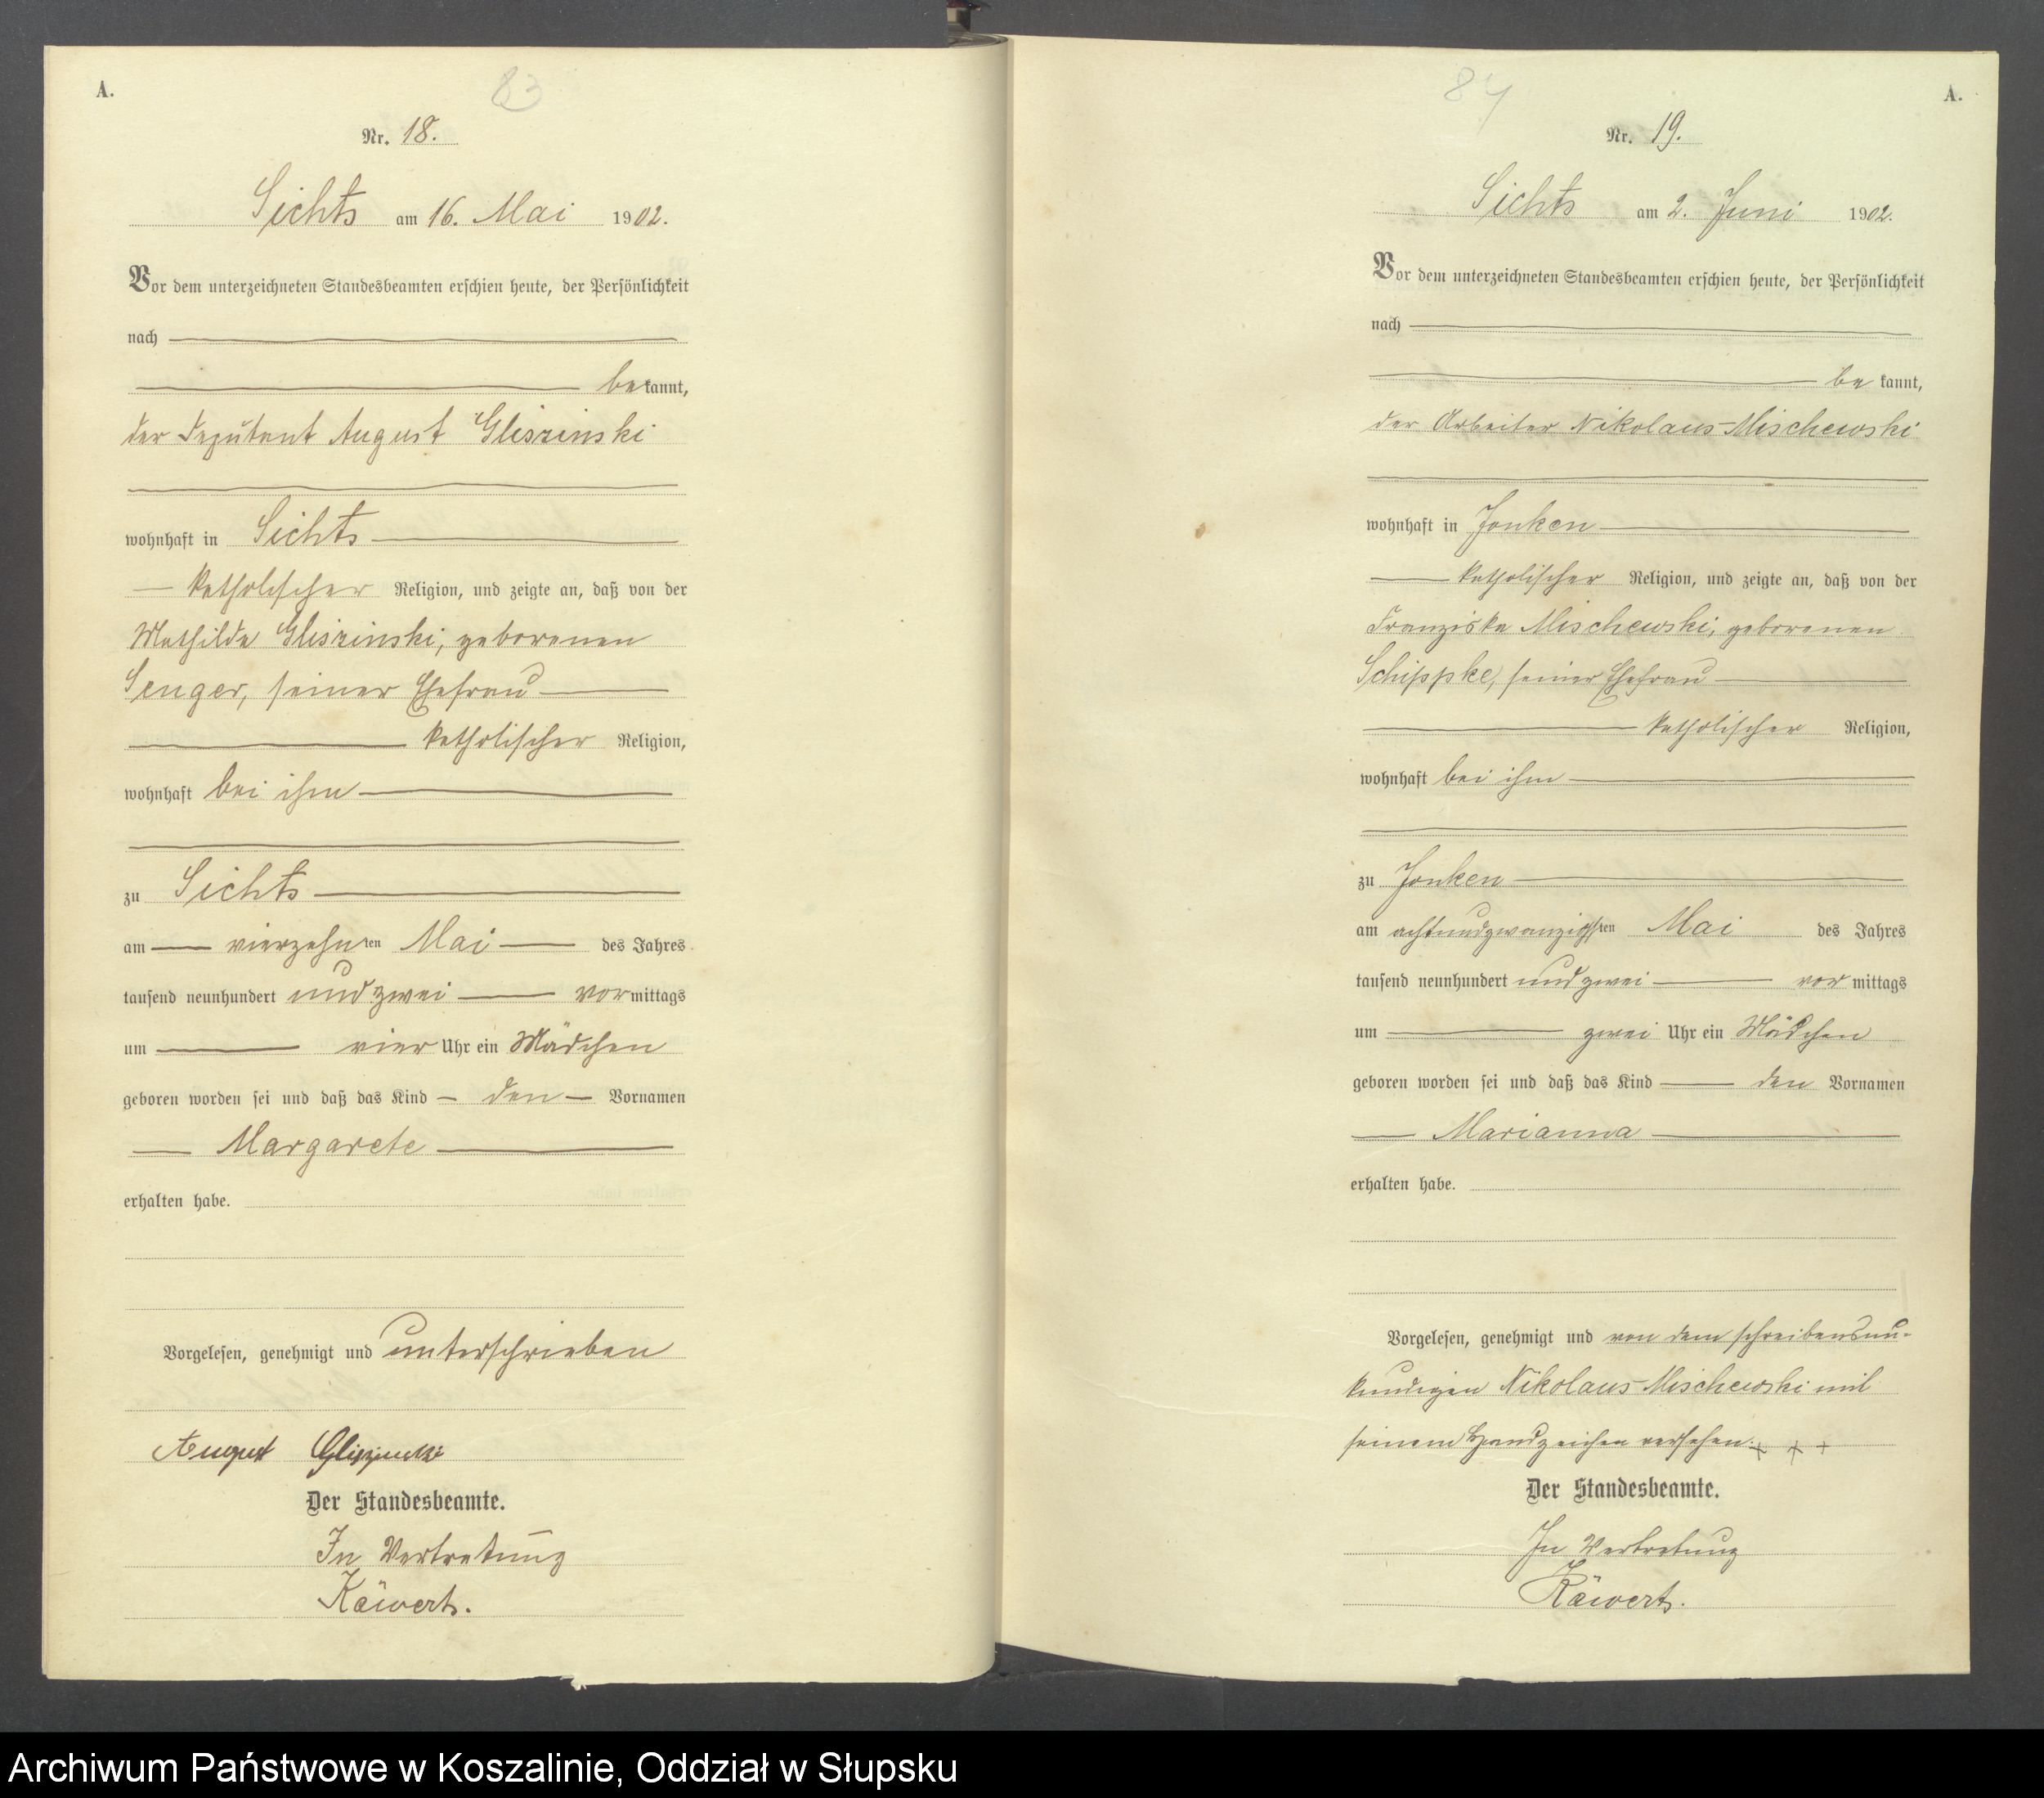 A.
83
Nr. 18.
Sichts am 16. Mai 1902.
Vor dem unterzeichneten Standesbeamten erschien heute, der Persönlichkeit
nach
bekannt,
der Deputant August Gliszinski
wohnhaft in Sichts
katholischer Religion, und zeigte an, daß von der
Mathilde Gliszinski, geborenen
Senger, seiner Ehefrau
katholischer Religion,
wohnhaft bei ihm
zu Sichts
am vierzehnten Mai des Jahres
tausend neunhundert und zwei vormittags
um vier Uhr ein Mädchen
geboren worden sei und daß das Kind den Vornamen
Margarete
erhalten habe.
Vorgelesen, genehmigt und unterschrieben
August Gliszinski
Der Standesbeamte.
In Vertretung
Käwert.
84
A.
Nr. 19.
Sichts am 2. Juni 1902.
Vor dem unterzeichneten Standesbeamten erschien heute, der Persönlichkeit
nach
bekannt,
der Arbeiter Nikolaus Mischewski
wohnhaft in Jonken
katholischer Religion, und zeigte an, daß von der
Franziska Mischewski, geborenen
Schippke, seiner Ehefrau
katholischer Religion,
wohnhaft bei ihm
zu Jonken
am achtundzwanzigsten Mai des Jahres
tausend neunhundert und zwei vormittags
um zwei Uhr ein Mädchen
geboren worden sei und daß das Kind den Vornamen
Marianna
erhalten habe.
Vorgelesen, genehmigt und von dem schreibensun-
kundigen Nikolaus Mischewski mit
seinem Handzeichen versehen. + + +
Der Standesbeamte.
In Vertretung
Käwert.
Archiwum Państwowe w Koszalinie, Oddział w Słupsku